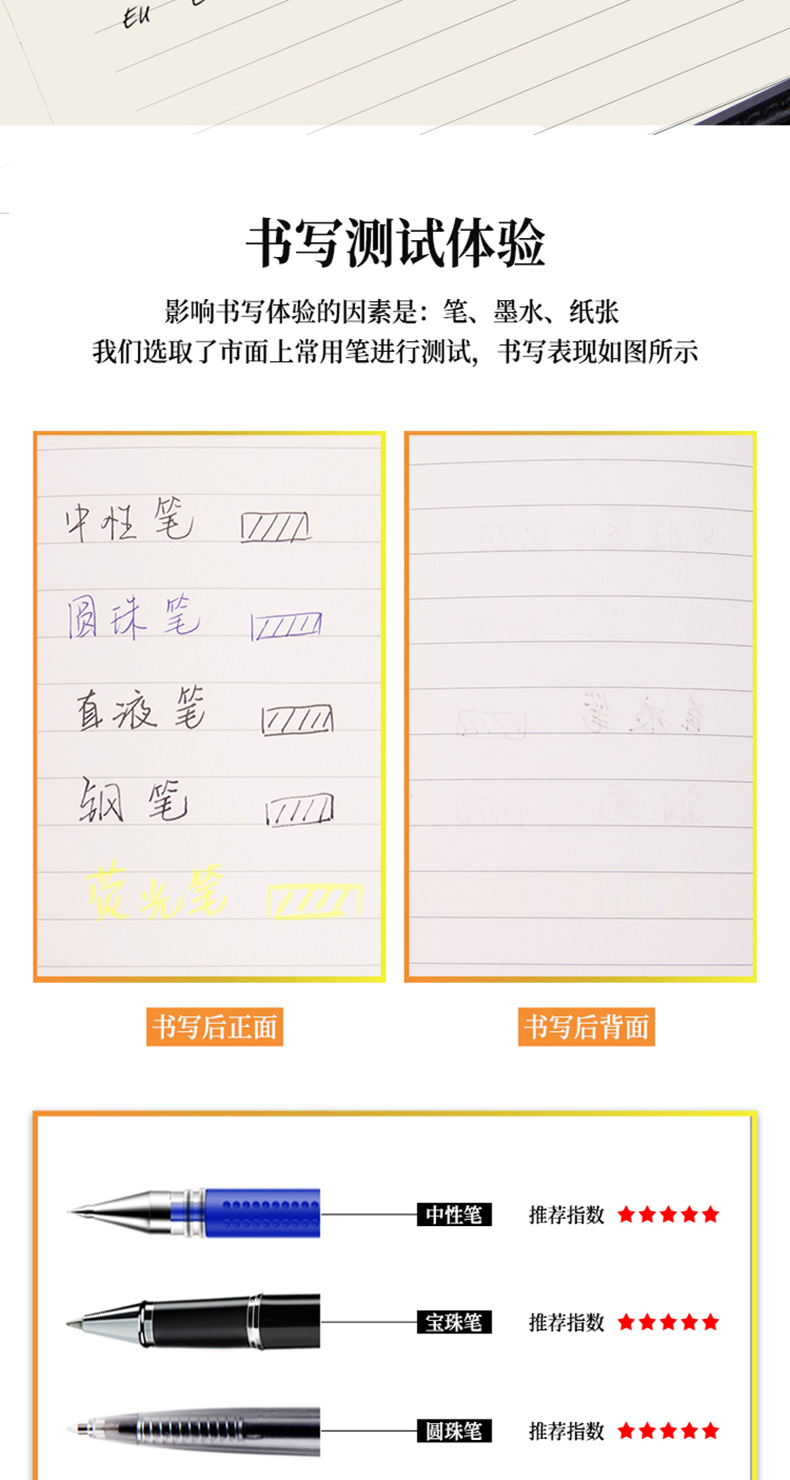 EU
书写测试体验
影响书写体验的因素是：笔、墨水、纸张
我们选取了市面上常用笔进行测试，书写表现如图所示
中性笔
圆珠笔
直液笔
钢笔
荧光笔
书写后正面
书写后背面
中性笔 推荐指数 ★★★★★
宝珠笔 推荐指数 ★★★★★
圆珠笔 推荐指数 ★★★★★